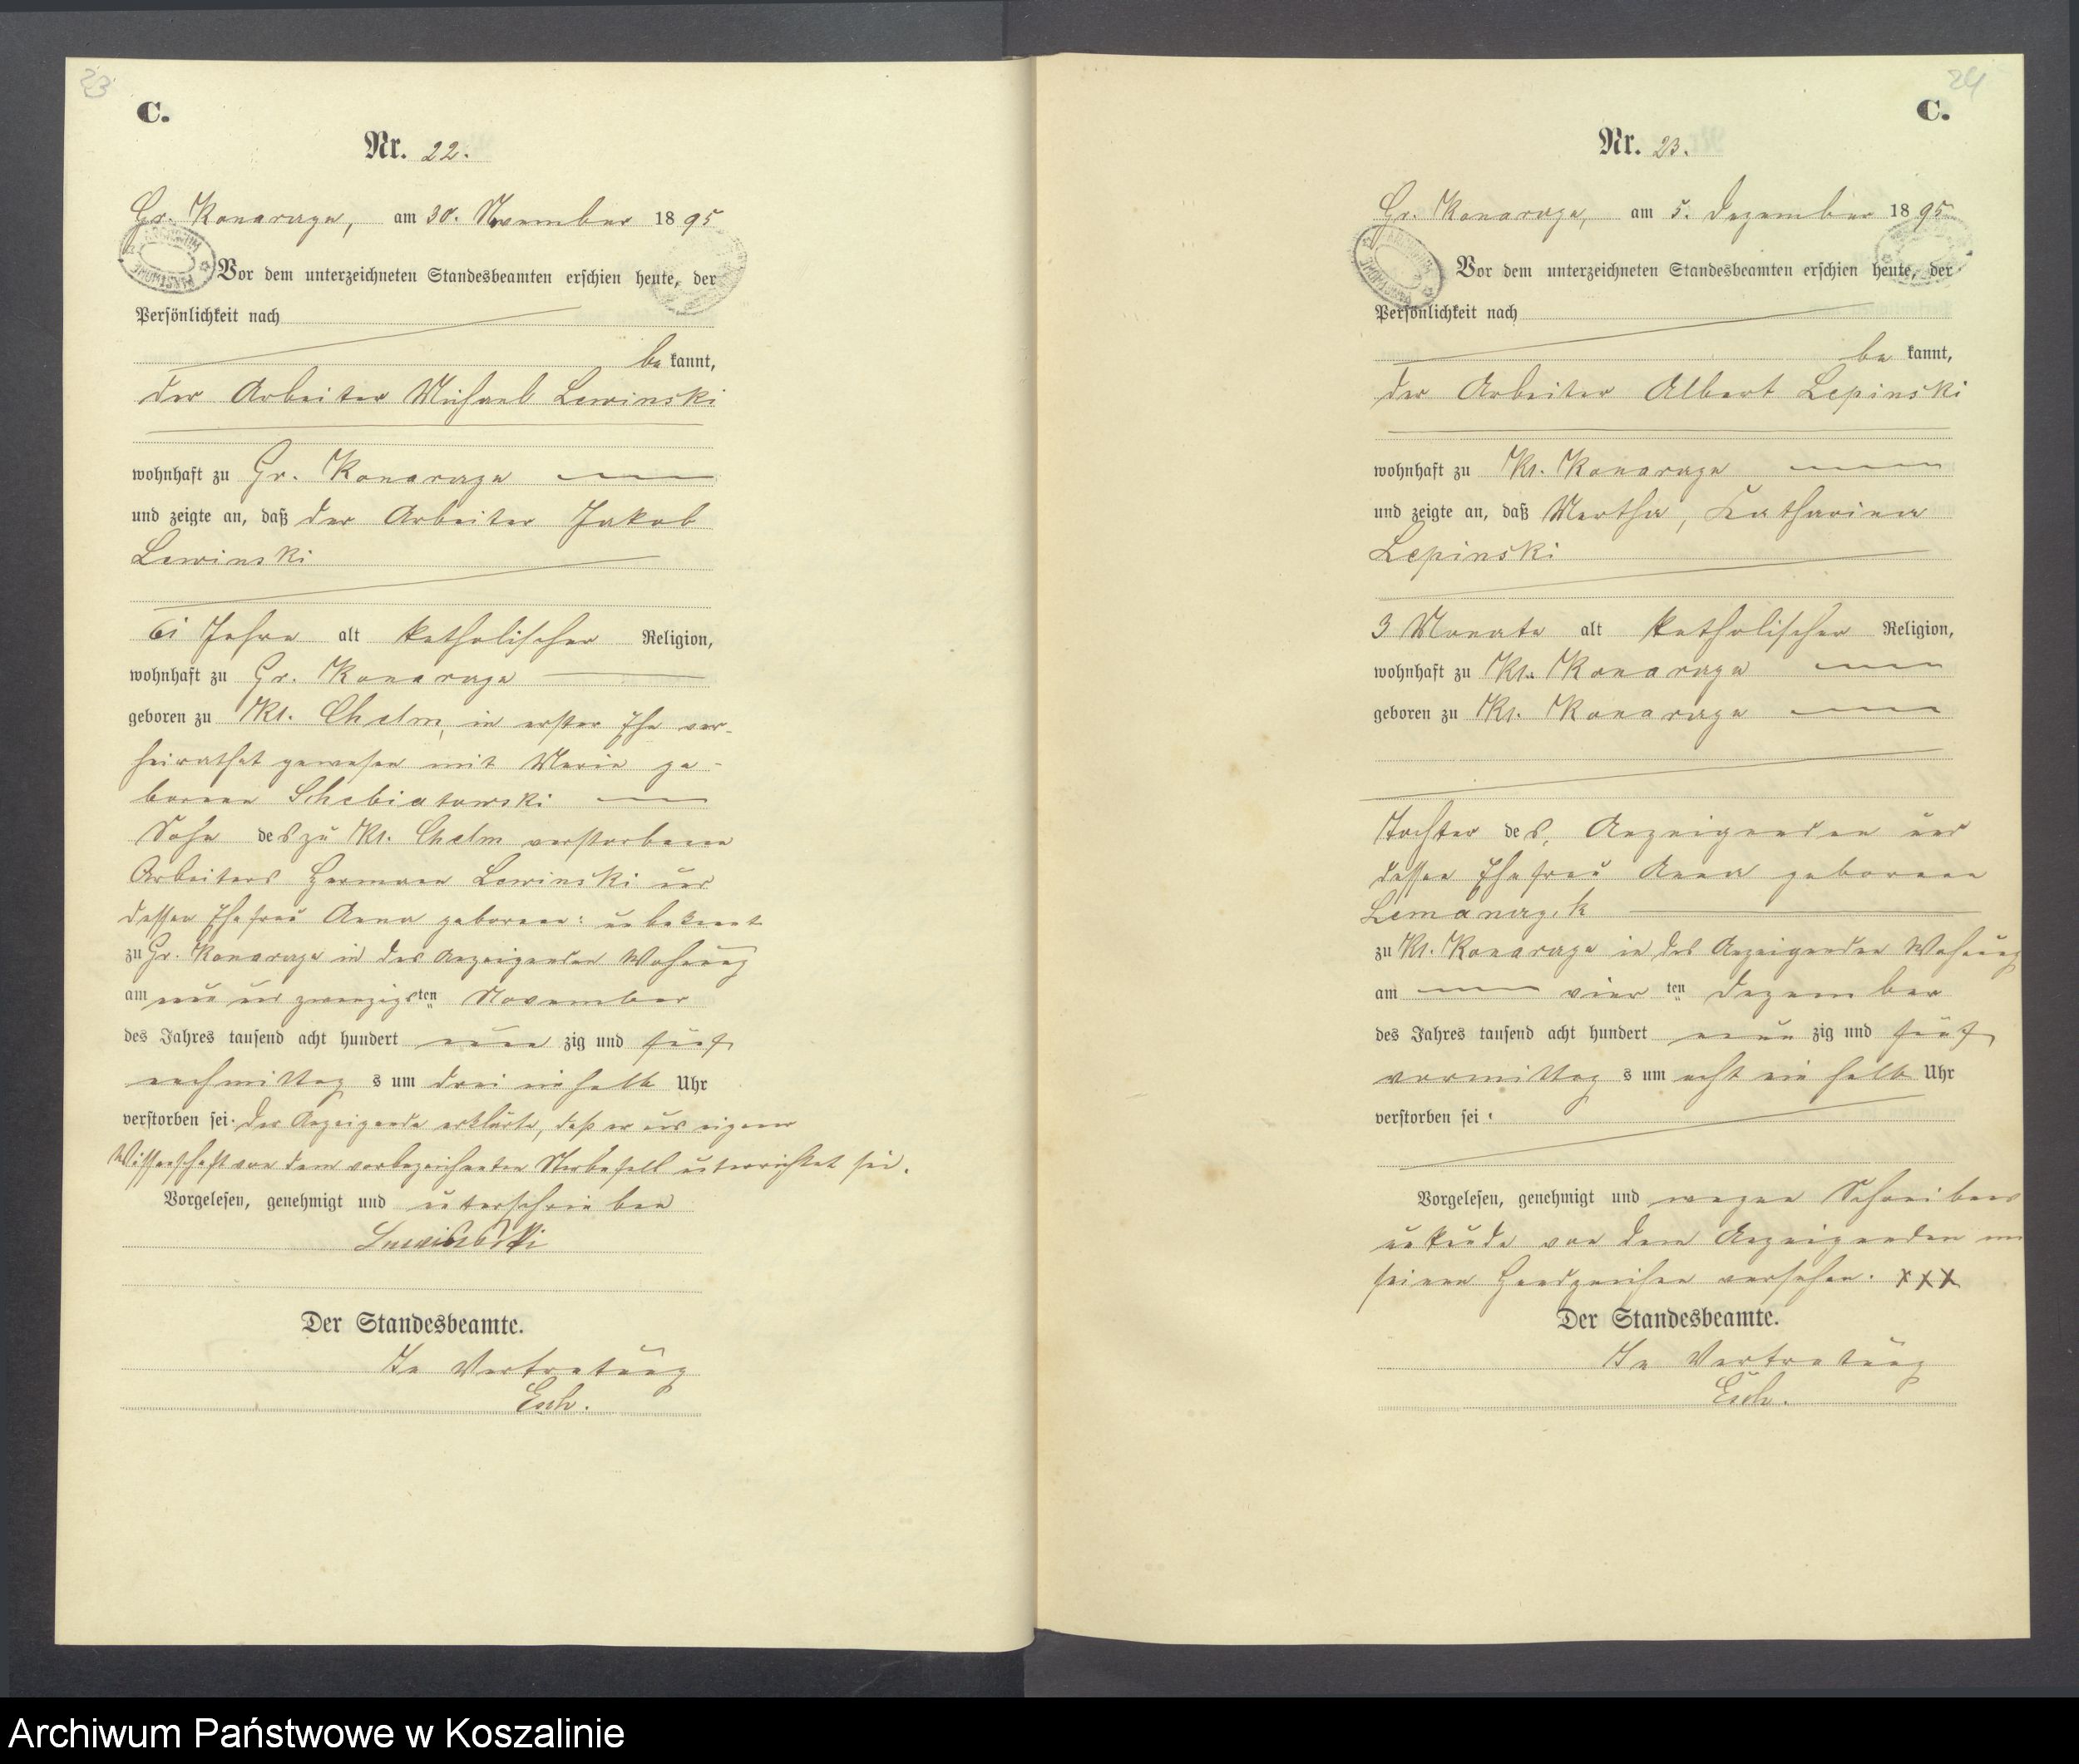 23
C.
Nr. 22.
Gr. Konarczyn, am 30. November 1895
Vor dem unterzeichneten Standesbeamten erschien heute, der
Persönlichkeit nach
bekannt,
der Arbeiter Michael Lewinski
wohnhaft zu Gr. Konarczyn
und zeigte an, daß der Arbeiter Jakob
Lewinski
61 Jahre alt katholischer Religion,
wohnhaft zu Gr. Konarczyn
geboren zu Kl. Chelm, in erster Ehe ver-
heirathet gewesen mit Maria ge-
borene Schebiatowski
Sohn des zu Kl. Chelm verstorbenen
Arbeiters Hermann Lewinski und
dessen Ehefrau Anna geborene: unbekannt
zu Gr. Konarczyn in des Anzeigenden Wohnung
am neun und zwanzigsten November
des Jahres tausend acht hundert neun zig und fünf
nachmittag s um drei ein halb Uhr
verstorben sei. Der Anzeigende erklärte, daß er aus eigener
Wissenschaft von dem vorbezeichneten Sterbefall unterrichtet sei.
Vorgelesen, genehmigt und unterschrieben
Der Standesbeamte.
In Vertretung
Esch.
24
C.
Nr. 23.
Gr. Konarczyn, am 5. Dezember 1895
Vor dem unterzeichneten Standesbeamten erschien heute, der
Persönlichkeit nach
bekannt,
der Arbeiter Albert Lepinski
wohnhaft zu Kl. Konarczyn
und zeigte an, daß Martha, Katharina
Lepinski
3 Monate alt katholischer Religion,
wohnhaft zu Kl. Konarczyn
geboren zu Kl. Konarczyn
Tochter des, Anzeigenden und
dessen Ehefrau Anna geborene
Lemanczyk
zu Kl. Konarczyn in des Anzeigenden Wohnung
am vier ten Dezember
des Jahres tausend acht hundert neun zig und fünf
vormittag s um acht ein halb Uhr
verstorben sei.
Vorgelesen, genehmigt und wegen Schreibens
unkunde von dem Anzeigenden mit
seinem Handzeichen versehen. XXX
Der Standesbeamte.
In Vertretung
Esch.
Archiwum Państwowe w Koszalinie